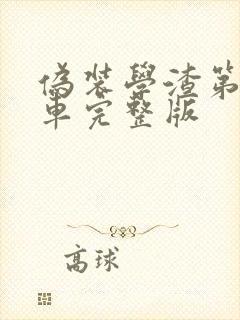 偽裝學渣第
車完整版
高球